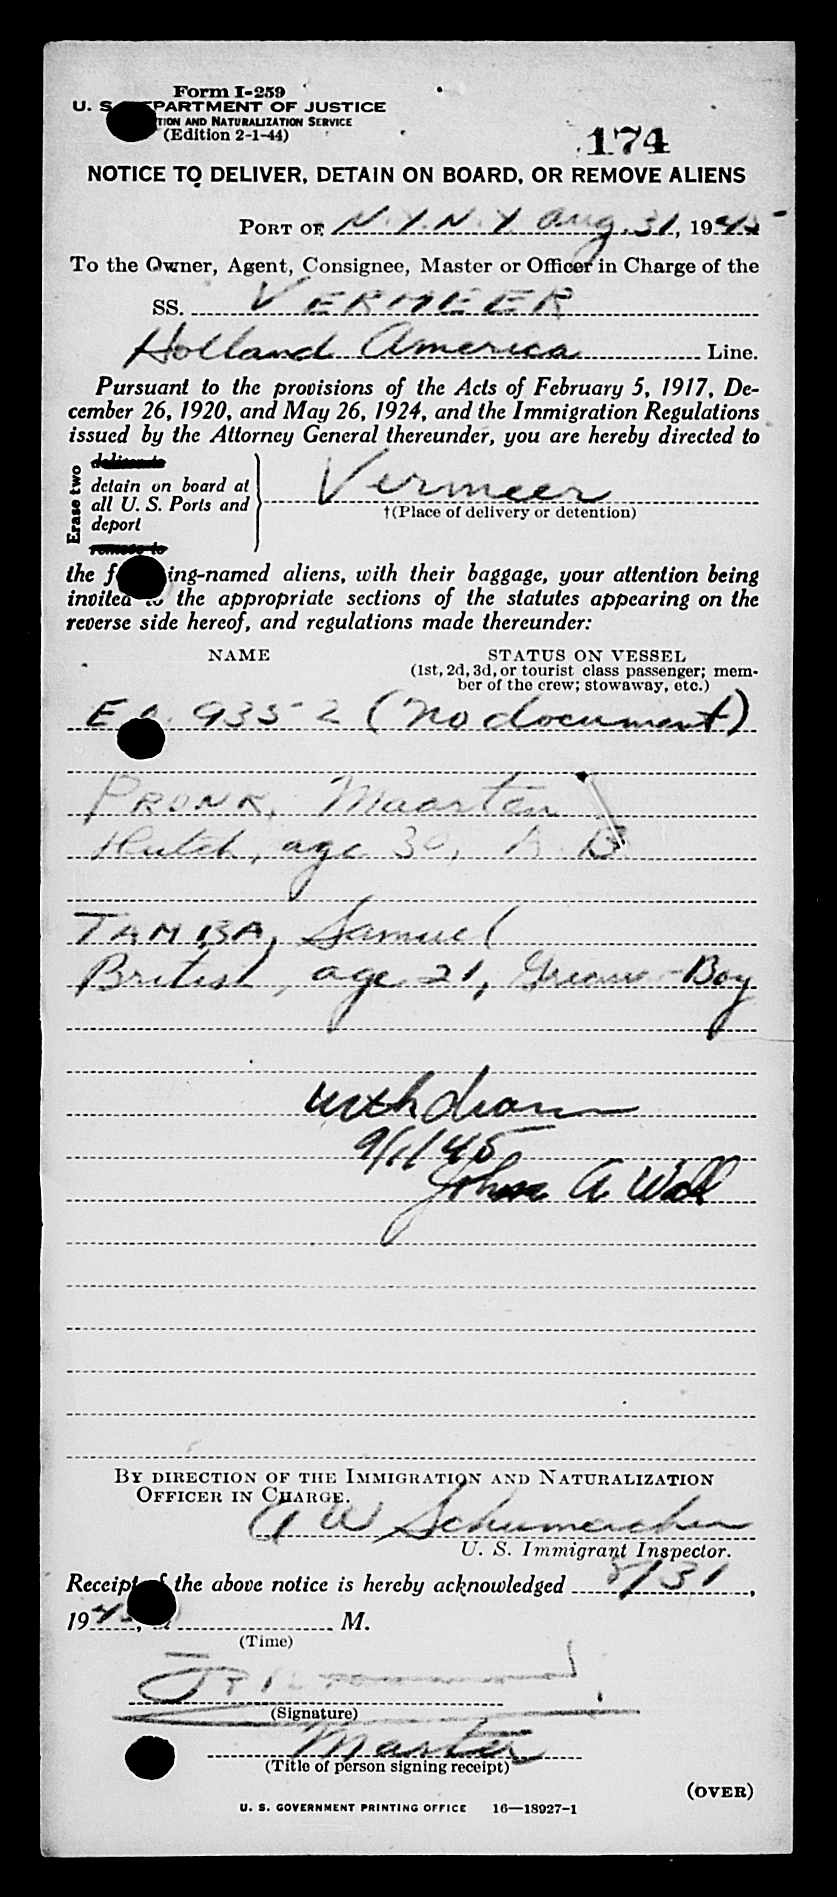 Form I-259
U. S. DEPARTMENT OF JUSTICE
TION AND NATURALIZATION SERVICE
(Edition 2-1-44)
174
NOTICE TO DELIVER, DETAIN ON BOARD, OR REMOVE ALIENS
PORT OF N.Y.N.Y. Aug. 31, 1945
To the Owner, Agent, Consignee, Master or Officer in Charge of the
SS. VERMEER
Holland America Line.
Pursuant to the provisions of the Acts of February 5, 1917, De-
cember 26, 1920, and May 26, 1924, and the Immigration Regulations
issued by the Attorney General thereunder, you are hereby directed to
Erase two
deliver to
detain on board at
all U. S. Ports and
deport
remove to
Vermeer
†(Place of delivery or detention)
the f ing-named aliens, with their baggage, your attention being
invited to the appropriate sections of the statutes appearing on the
reverse side hereof, and regulations made thereunder:
NAME STATUS ON VESSEL
(1st, 2d, 3d, or tourist class passenger; mem-
ber of the crew; stowaway, etc.)
935-2 (No document)
PRONK, Maarten
Dutch, age 30, A.B.
TAMBA, Samuel
British, age 21, Boy
withdrawn
9/1/45
John A Wall
BY DIRECTION OF THE IMMIGRATION AND NATURALIZATION
OFFICER IN CHARGE.
A W Schumacher
U. S. Immigrant Inspector.
Receipt of the above notice is hereby acknowledged 8/31,
1945, at M.
(Time)
(Signature)
Master
(Title of person signing receipt)
(OVER)
U. S. GOVERNMENT PRINTING OFFICE 16—18927-1